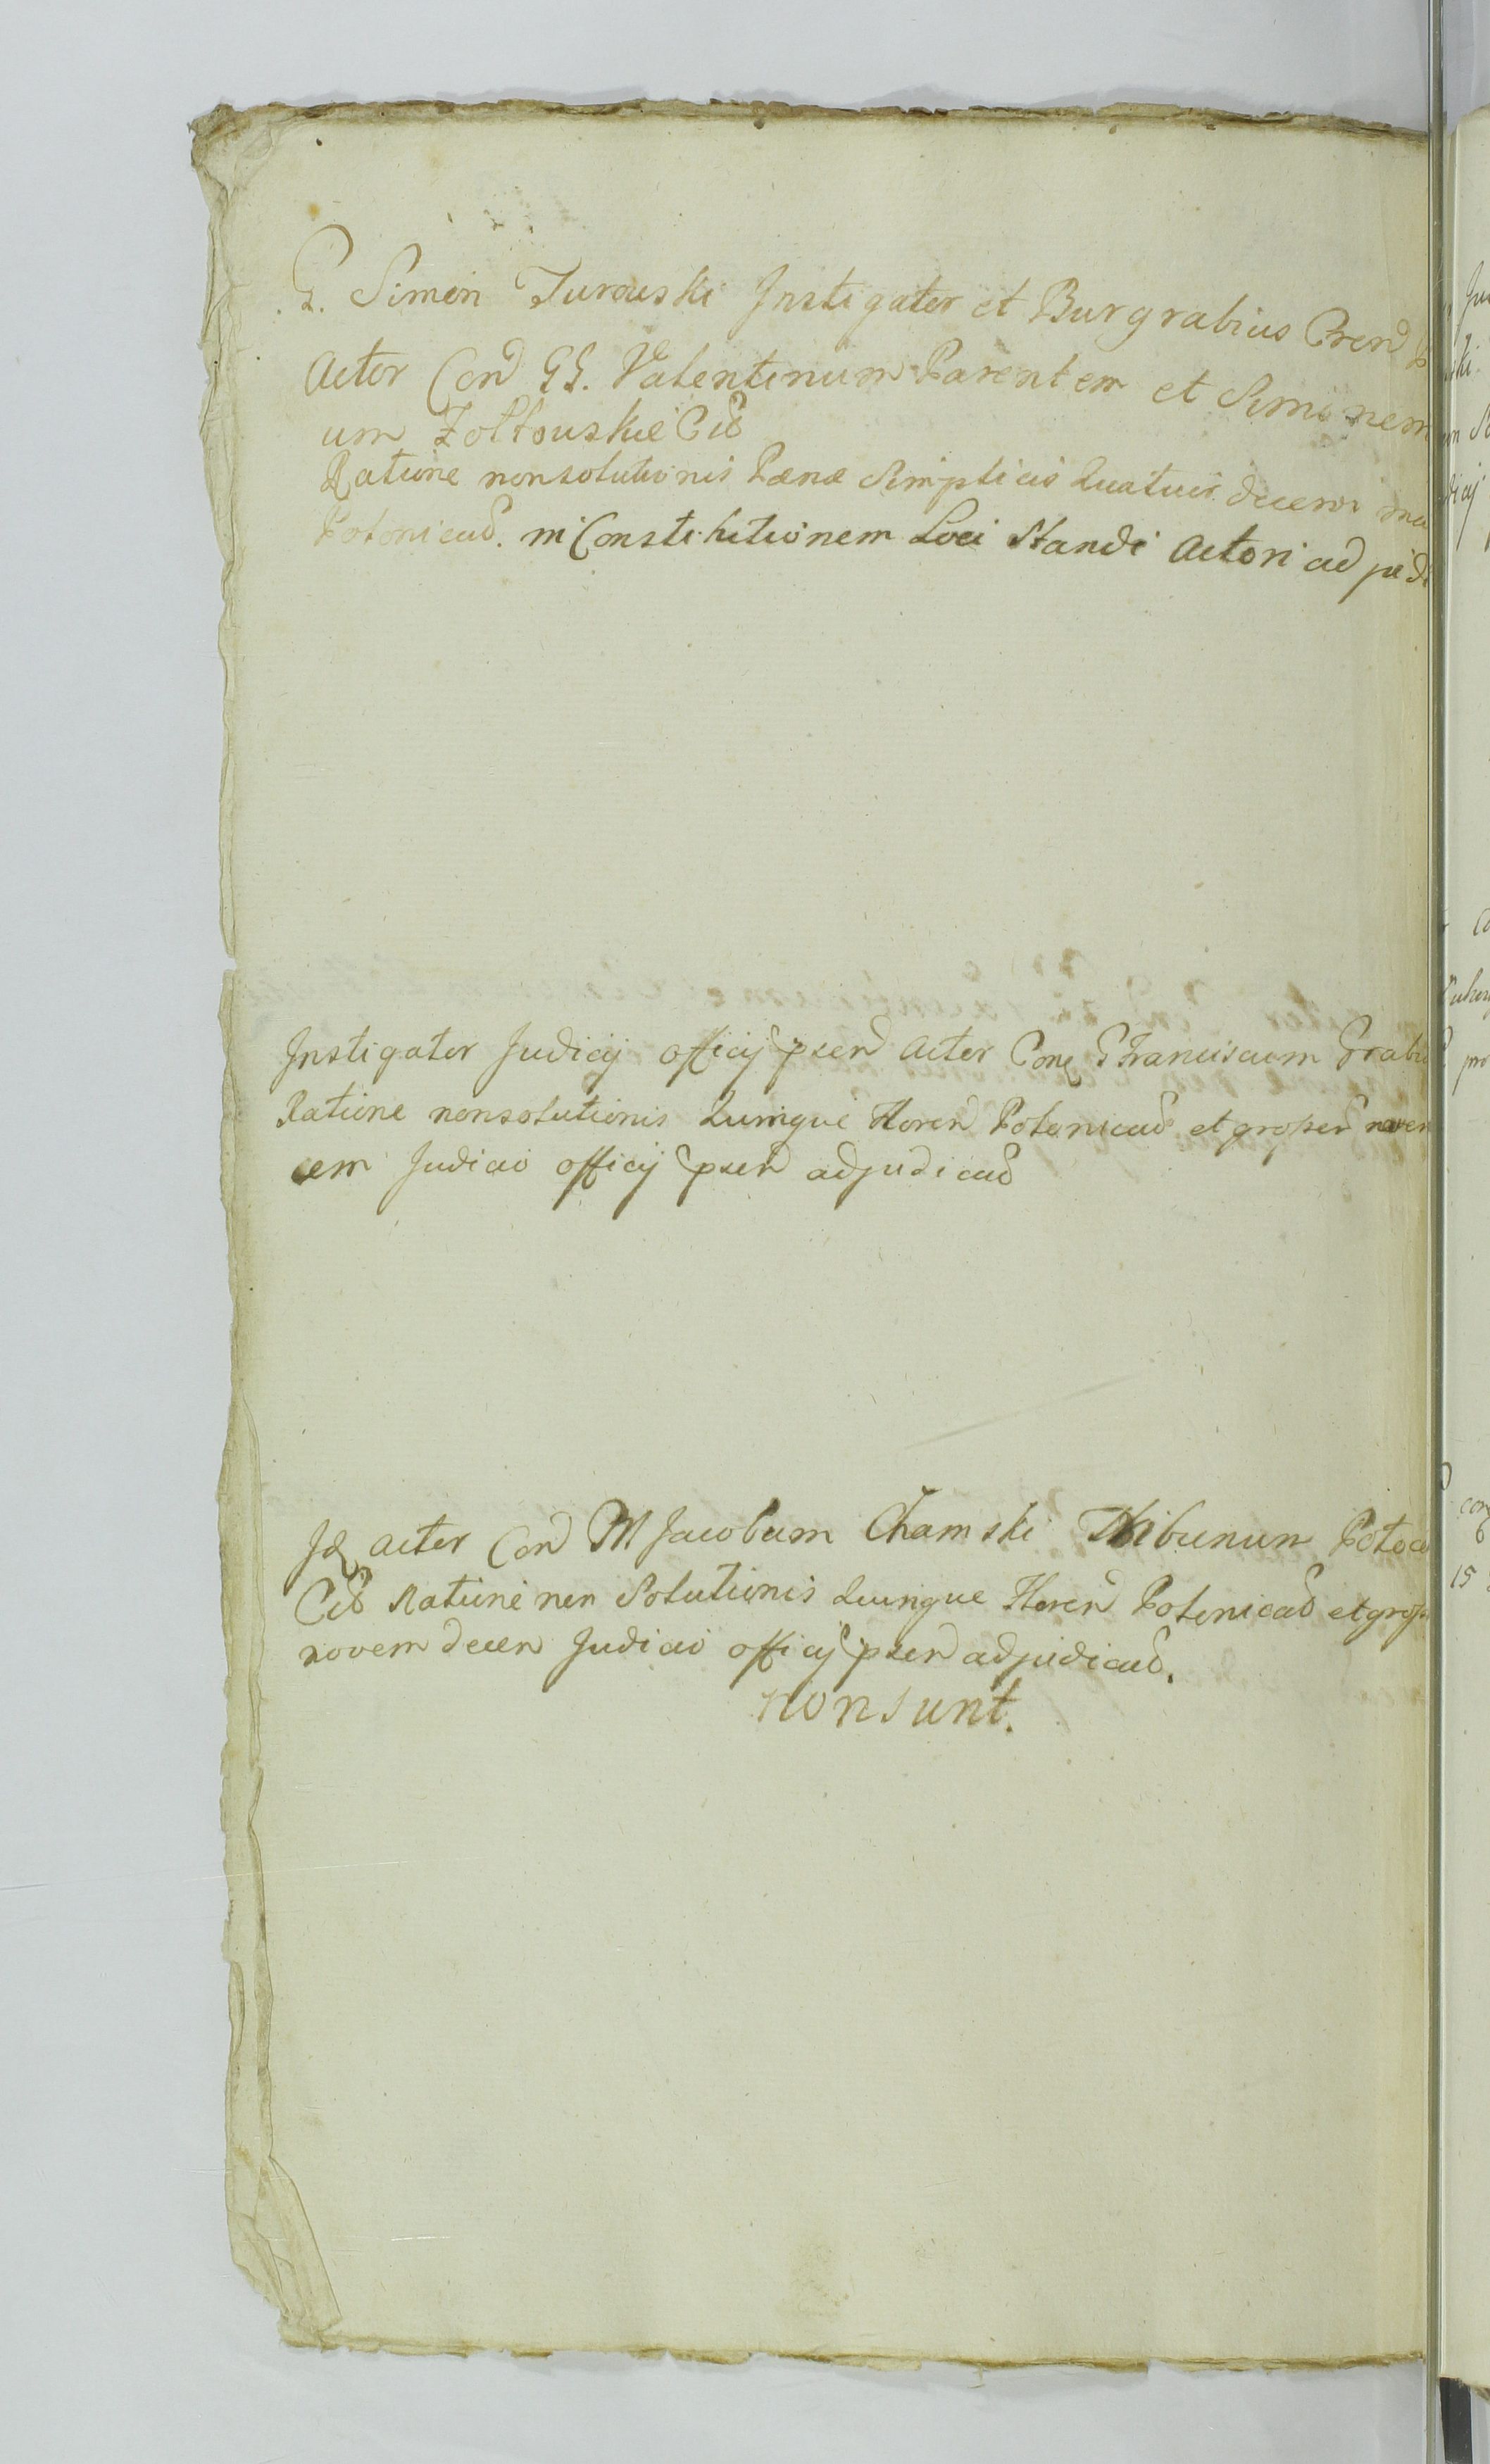 G. Simon Turouski Instigator et Burgrabius Cren
Actor Con GG. Valentinum Parentem et Simonem
um Zołtouskie Cit
Ratione nonsolutionis Pænæ Simplicis Quatuor decem ma
Polonicas. in Constitutionem Loci Standi Actori ad
Instigator Judicij officij psen Actor Conq G Franciscum Grab
Ratione nonsolutionis Quinque Floren Polonicas et grossis noven
cem Judicio officij psen adjudicas
Id actor Con M Jacobum Chamski Tribunum Poloc
Cit Ratione non Solutionis Quinque Floren Polonicas et gros
novem decen Judicio officij psen adjudicas.
non sunt.